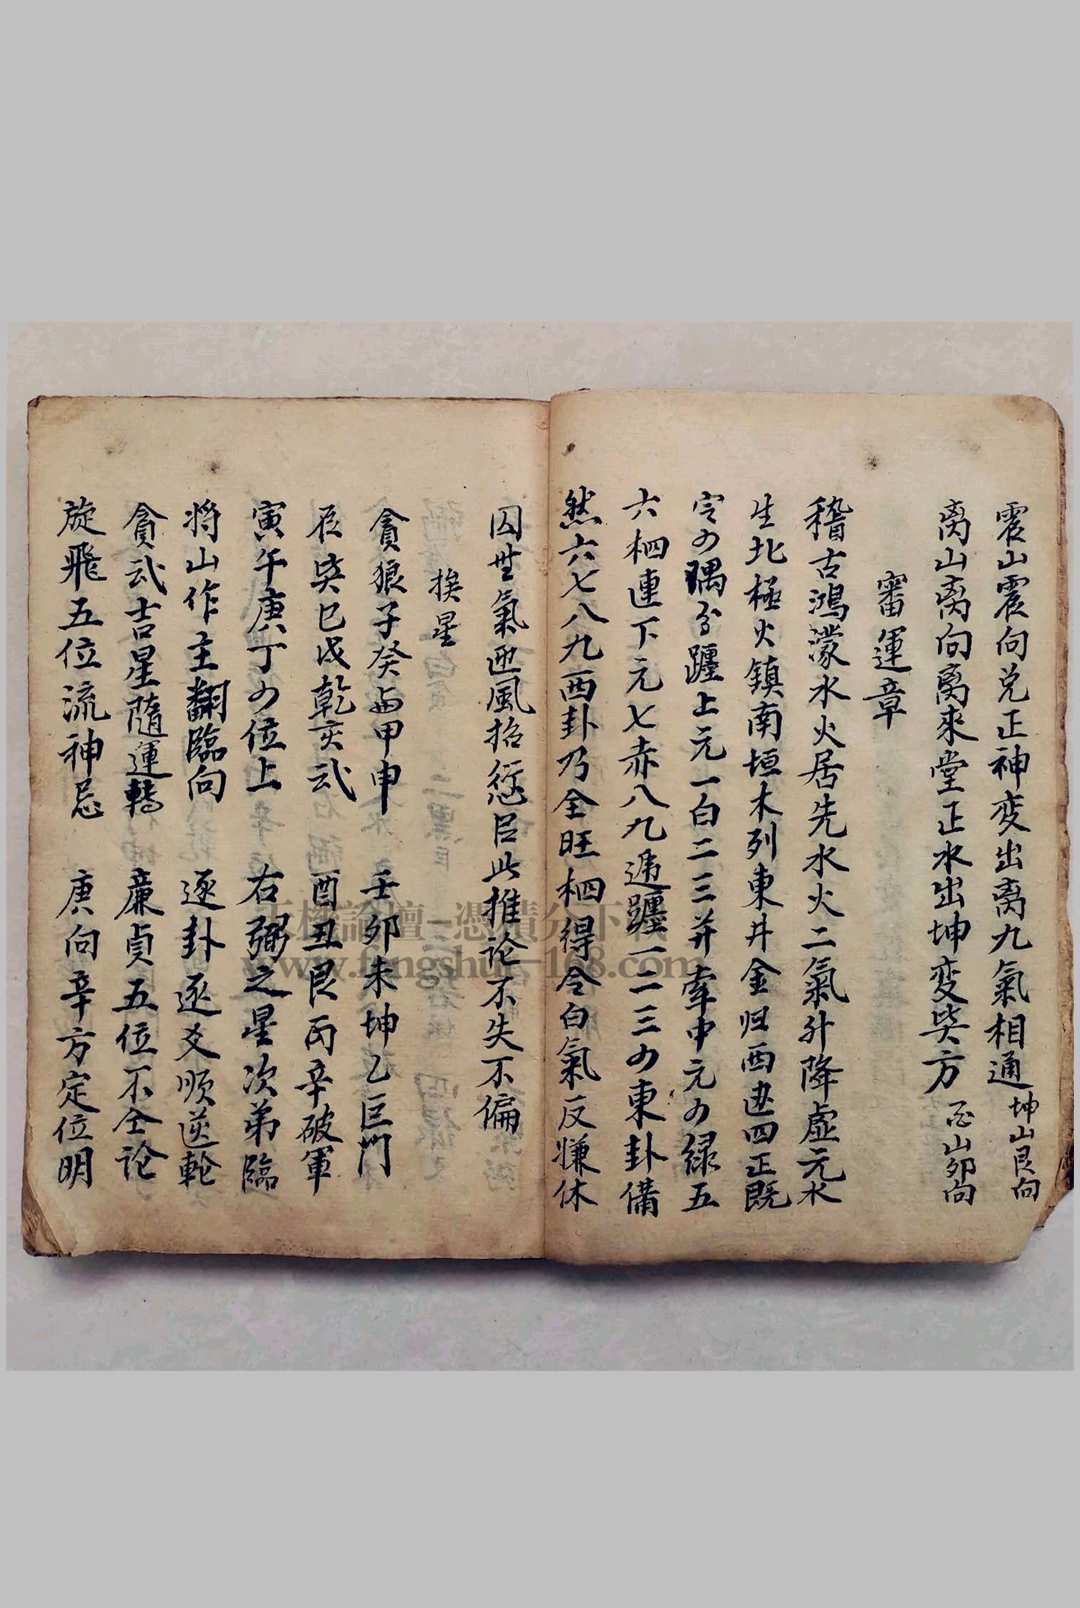 震山震向兑正神变出离九氣相通 坤山艮向
离山离向离來堂正水出坤变巽方 酉山卯向
審運章
稽古鴻濛水火居先水火二氣升降虛元水
生北極火鎮南垣木列東井金归西 四正既
定 隅分躔上元一白二三并牽中元 绿五
六 連下元七赤八九遁躔一二三 東卦備
然六七八九西卦乃全旺 得令白氣反慊休
囚無氣迎風招愆 此推论不失不偏
挨星
貪狼子癸 甲申 壬卯未坤乙巨門
辰巽巳戌乾亥武 酉丑艮丙辛破軍
寅午庚丁 位上 右弼之星次弟臨
将山作主翻臨向 逐卦逐爻順逆輪
貪武吉星隨運轉 廉貞五位不仝论
旋飛五位流神忌 庚向辛方定位明
論壇-憑積分下
www.fengshui-168.com